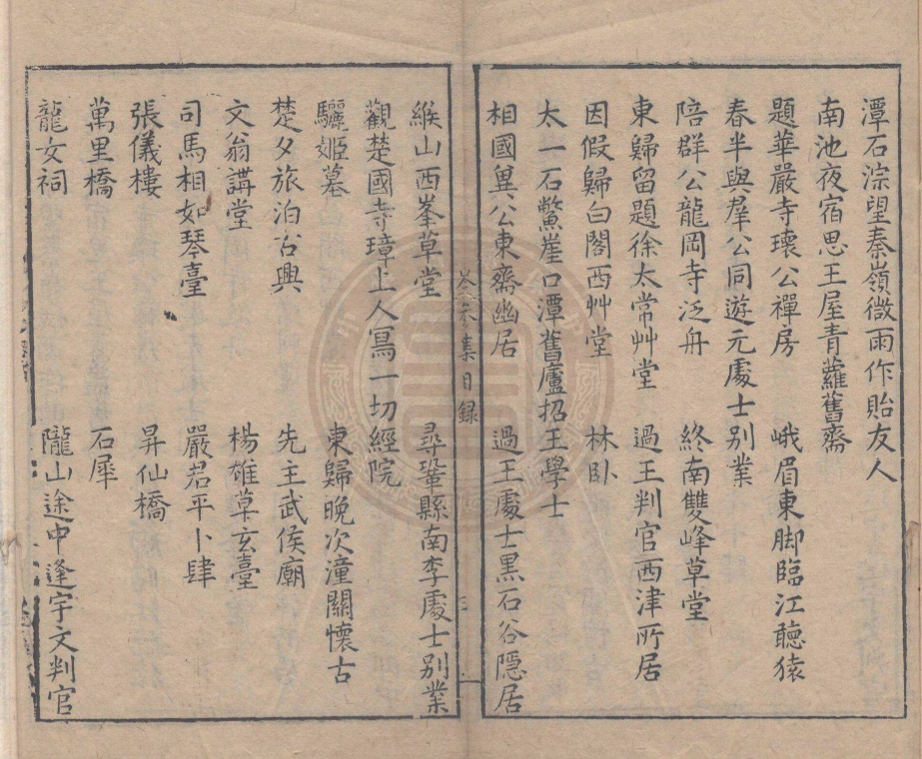 潭石淙望秦嶺微雨作貽友人
南池夜宿思王屋青蘿舊齋
題華嚴寺瓌公禪房 峨眉東脚臨江聽猿
春半與羣公同遊元處士別業
陪群公龍岡寺泛舟 終南雙峰草堂
東歸留題徐太常艸堂 過王判官西津所居
因假歸白閣西艸堂 林臥
太一石鱉崖口潭舊廬招王學士
相國異公東齋幽居 過王處士黑石谷隱居
岑參集目錄
緱山西峯草堂 尋鞏縣南李處士別業
觀楚國寺璋上人寫一切經院
驪姬墓 東歸晚次潼關懷古
楚夕旅泊古興 先主武侯廟
文翁講堂 楊雄草玄臺
司馬相如琴臺 嚴君平卜肆
張儀樓 昇仙橋
萬里橋 石犀
龍女祠 隴山途中逢宇文判官